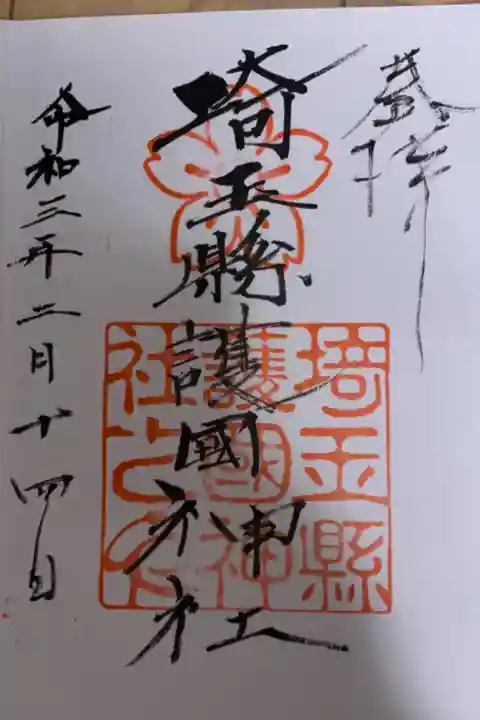 奉拝
埼玉縣護國神社
埼玉縣
護國神
社之印
令和三年二月十四日